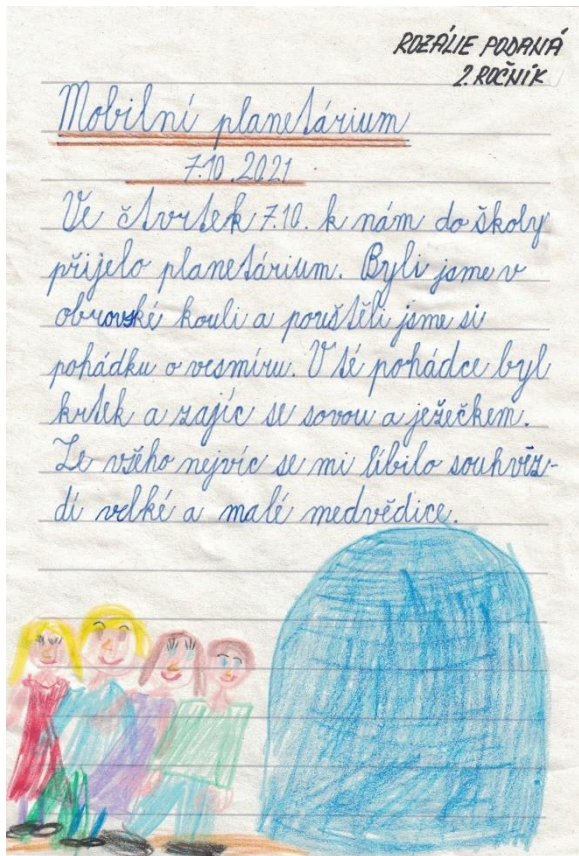 ROZÁLIE PODANÁ
2. ROČNÍK
Mobilní planetárium
7.10.2021
Ve čtvrtek 7.10. k nám do školy
přijelo planetárium. Byli jsme v
obrovské kouli a pouštěli jsme si
pohádku o vesmíru. V té pohádce byl
krtek a zajíc se sovou a ježečkem.
Ze všeho nejvíc se mi líbilo souhvěz-
dí velké a malé medvědice.